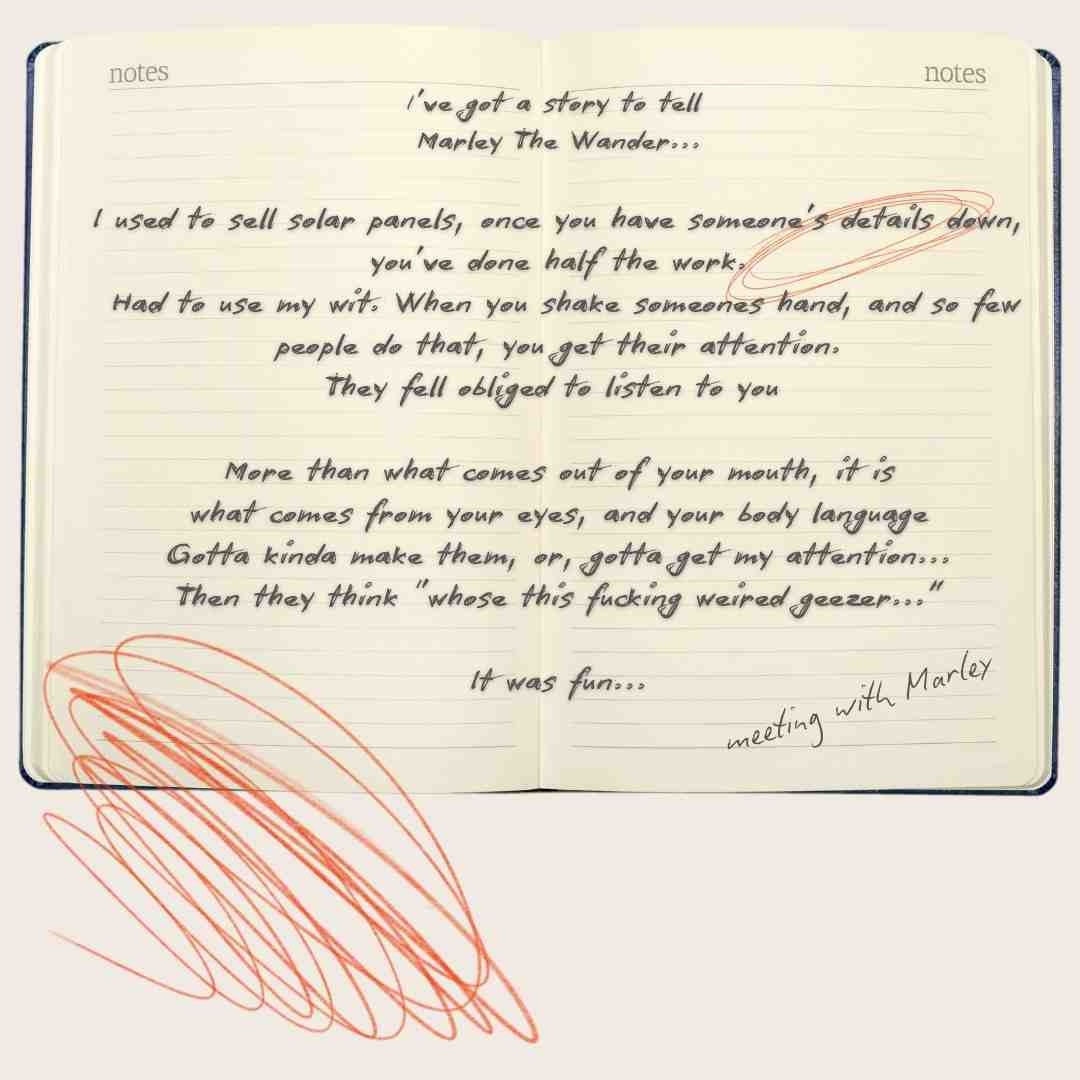 notes
notes
I've got a story to tell
Marley The Wander...
I used to sell solar panels, once you have someone's details down,
you've done half the work.
Had to use my wit. When you shake someones hand, and so few
people do that, you get their attention.
They fell obliged to listen to you
More than what comes out of your mouth, it is
what comes from your eyes, and your body language
Gotta kinda make them, or, gotta get my attention...
Then they think "whose this fucking weired geezer..."
It was fun...
meeting with Marley